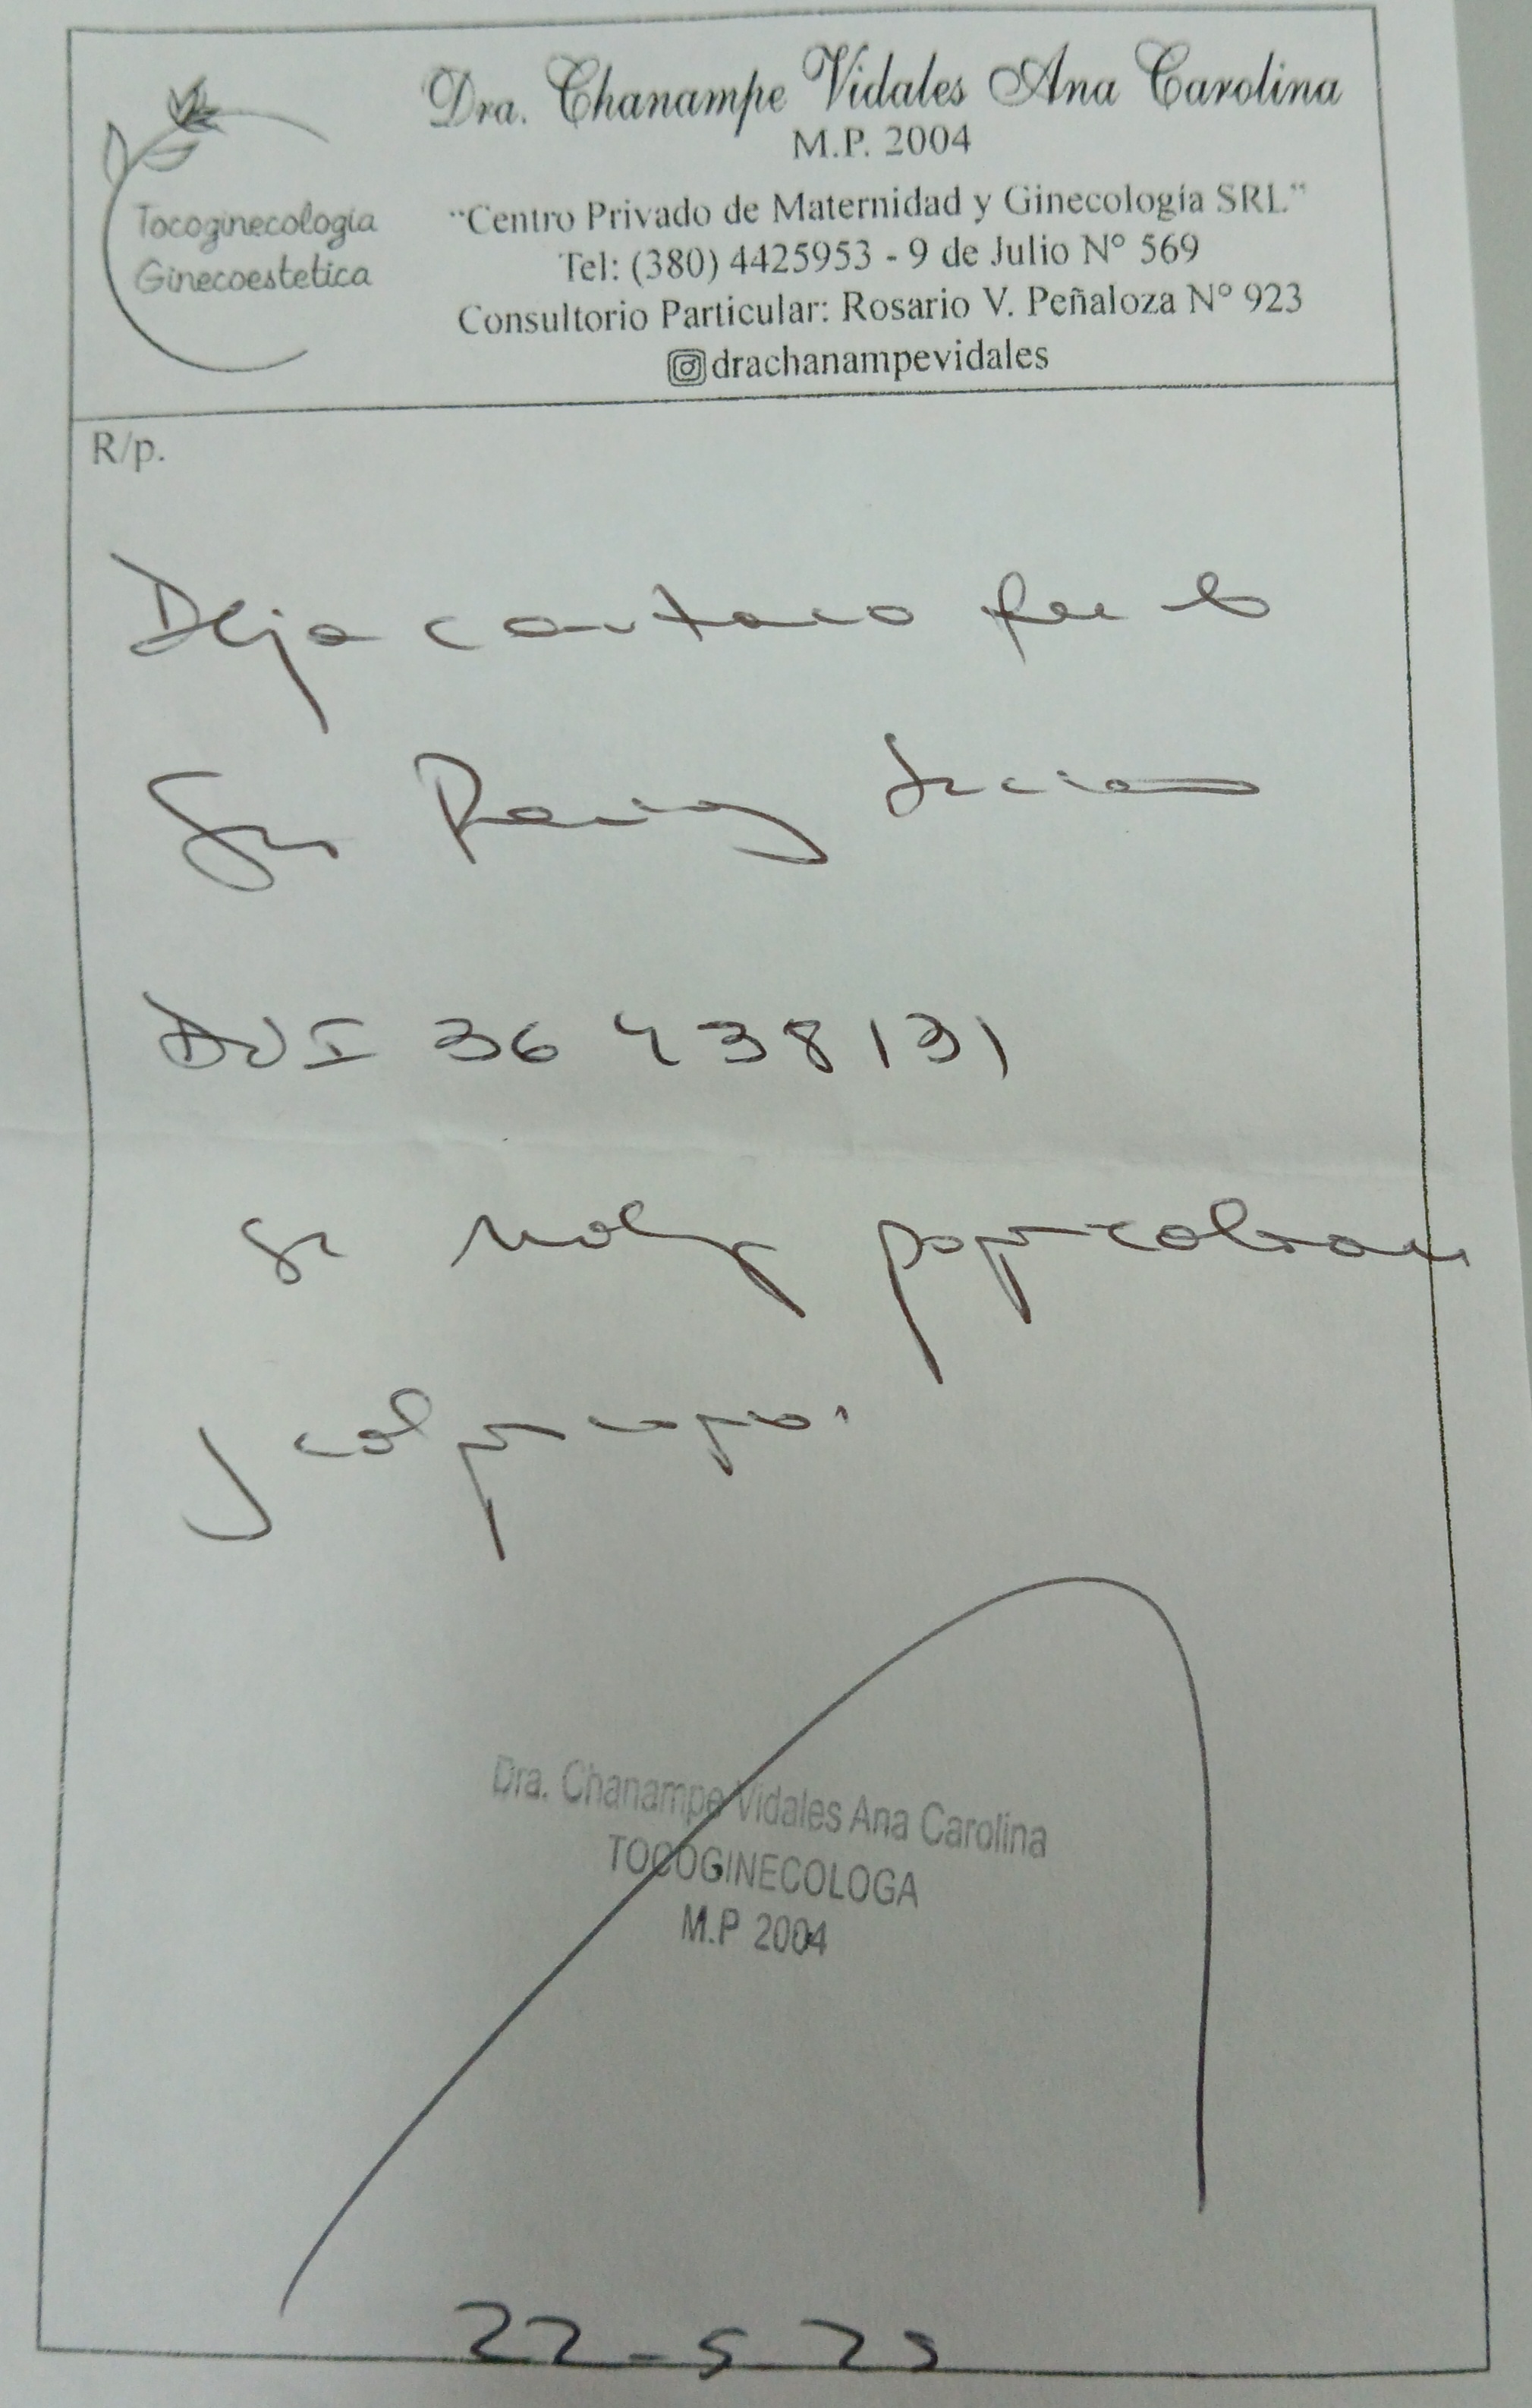 Dra. Chanampe Vidales Ana Carolina
M.P. 2004
Tocoginecología
Ginecoestetica
"Centro Privado de Maternidad y Ginecología SRL"
Tel: (380) 4425953 - 9 de Julio N° 569
Consultorio Particular: Rosario V. Peñaloza N° 923
drachanampevidales
R/p.
Dejo constancia que la
DNI 36 438131
se realizo papanicolaou
y colposcopia.
Dra. Chanampe Vidales Ana Carolina
TOCOGINECOLOGA
M.P 2004
22-5 25